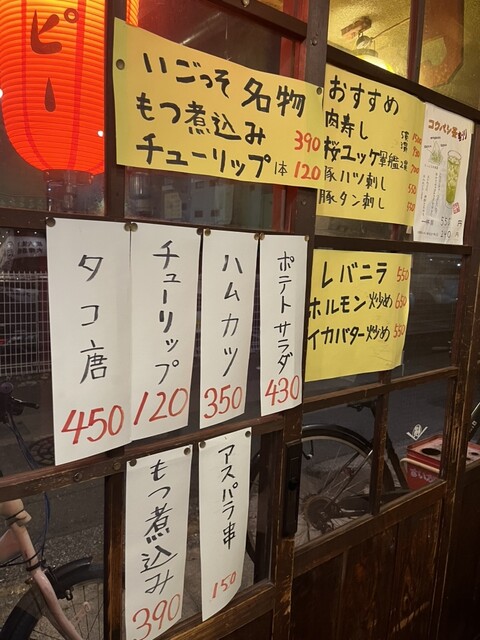 ピー
いごっそ 名物
もつ煮込み 390
チューリップ 1本 120
おすすめ
肉寿し
桜ユッケ軍艦
豚ハツ刺し
豚タン刺し
レバニラ 550
ホルモン炒め 650
イカバター炒め 550
タコ唐 450
チューリップ 120
ハムカツ 350
ポテトサラダ 430
もつ煮込み 390
アスパラ串 150